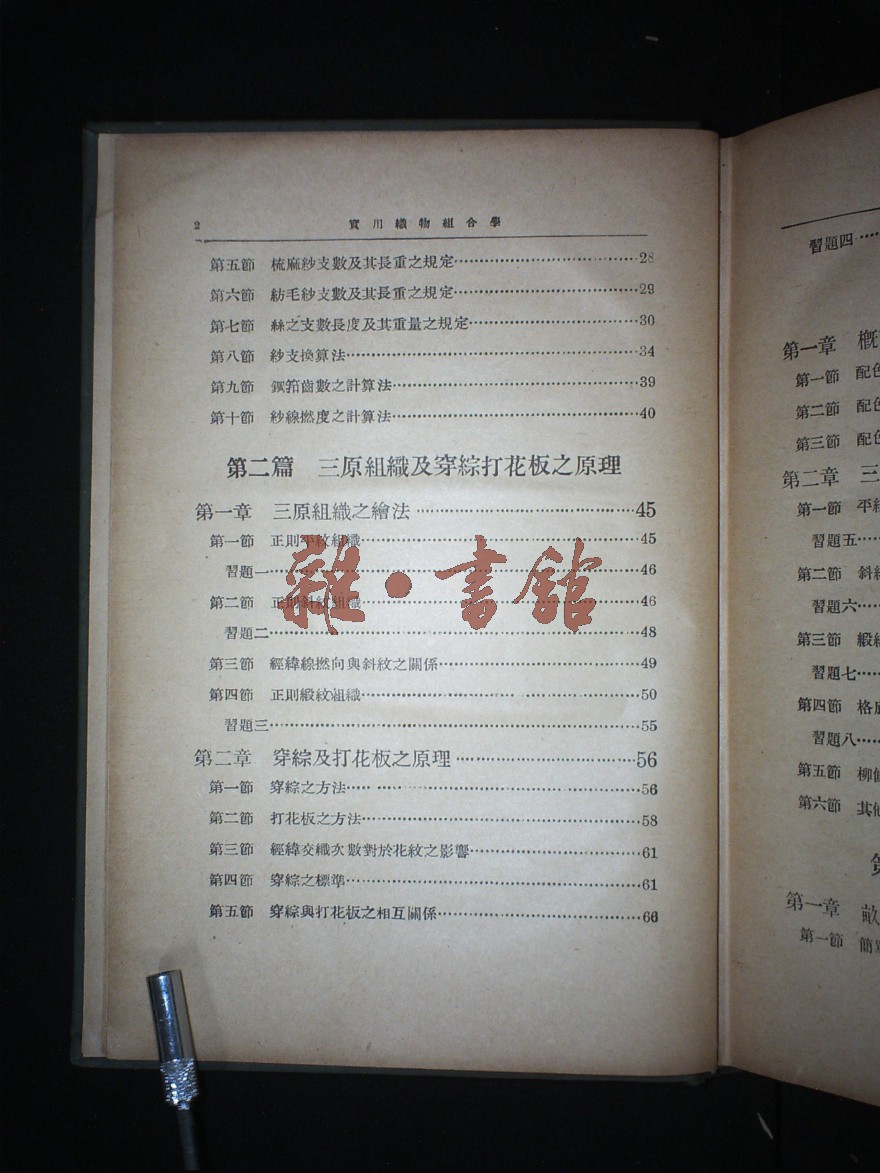 2 實用織物組合學
第五節 梳麻紗支數及其長重之規定 28
第六節 紡毛紗支數及其長重之規定 29
第七節 絲之支數長度及其重量之規定 30
第八節 紗支換算法 34
第九節 鋼筘齒數之計算法 39
第十節 紗線撚度之計算法 40
第二篇 三原組織及穿綜打花板之原理
第一章 三原組織之繪法 45
第一節 正則平紋組織 45
習題一 46
第二節 正則斜紋組織 46
習題二 48
第三節 經緯線撚向與斜紋之關係 49
第四節 正則緞紋組織 50
習題三 55
第二章 穿綜及打花板之原理 56
第一節 穿綜之方法 56
第二節 打花板之方法 58
第三節 經緯交織次數對於花紋之影響 61
第四節 穿綜之標準 61
第五節 穿綜與打花板之相互關係 66
雜·書館
習題四
第一章 概
第一節 配色
第二節 配色
第三節 配色
第二章 三
第一節 平紋
習題五
第二節 斜紋
習題六
第三節 緞紋
習題七
第四節
習題八
第五節 柳條
第六節 其他
第一章
第一節 簡單